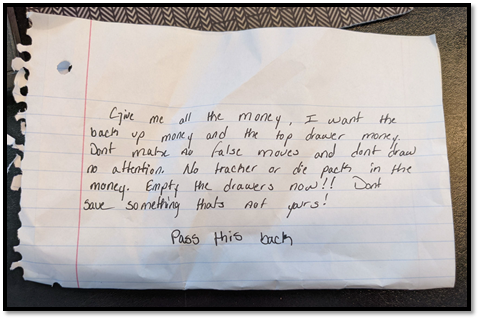 Give me all the money, I want the
back up money and the top drawer money.
Dont make no false moves and dont draw
no attention. No tracker or die pack in the
money. Empty the drawers now!! Dont
save something thats not yours!
Pass this back